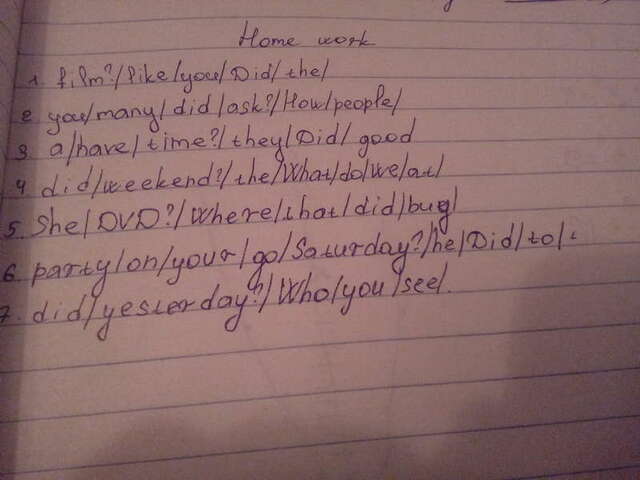 Home work
1 film?/like/you/Did/the/
2 you/many/did/ask?/How/people/
3 a/have/time?/they/Did/good
4 did/weekend?/the/What/do/we/at/
5. She/DVD?/Where/that/did/bug/
6. party/on/your/go/Saturday?/he/Did/to/
7. did/yesterday?/Who/you/see/.